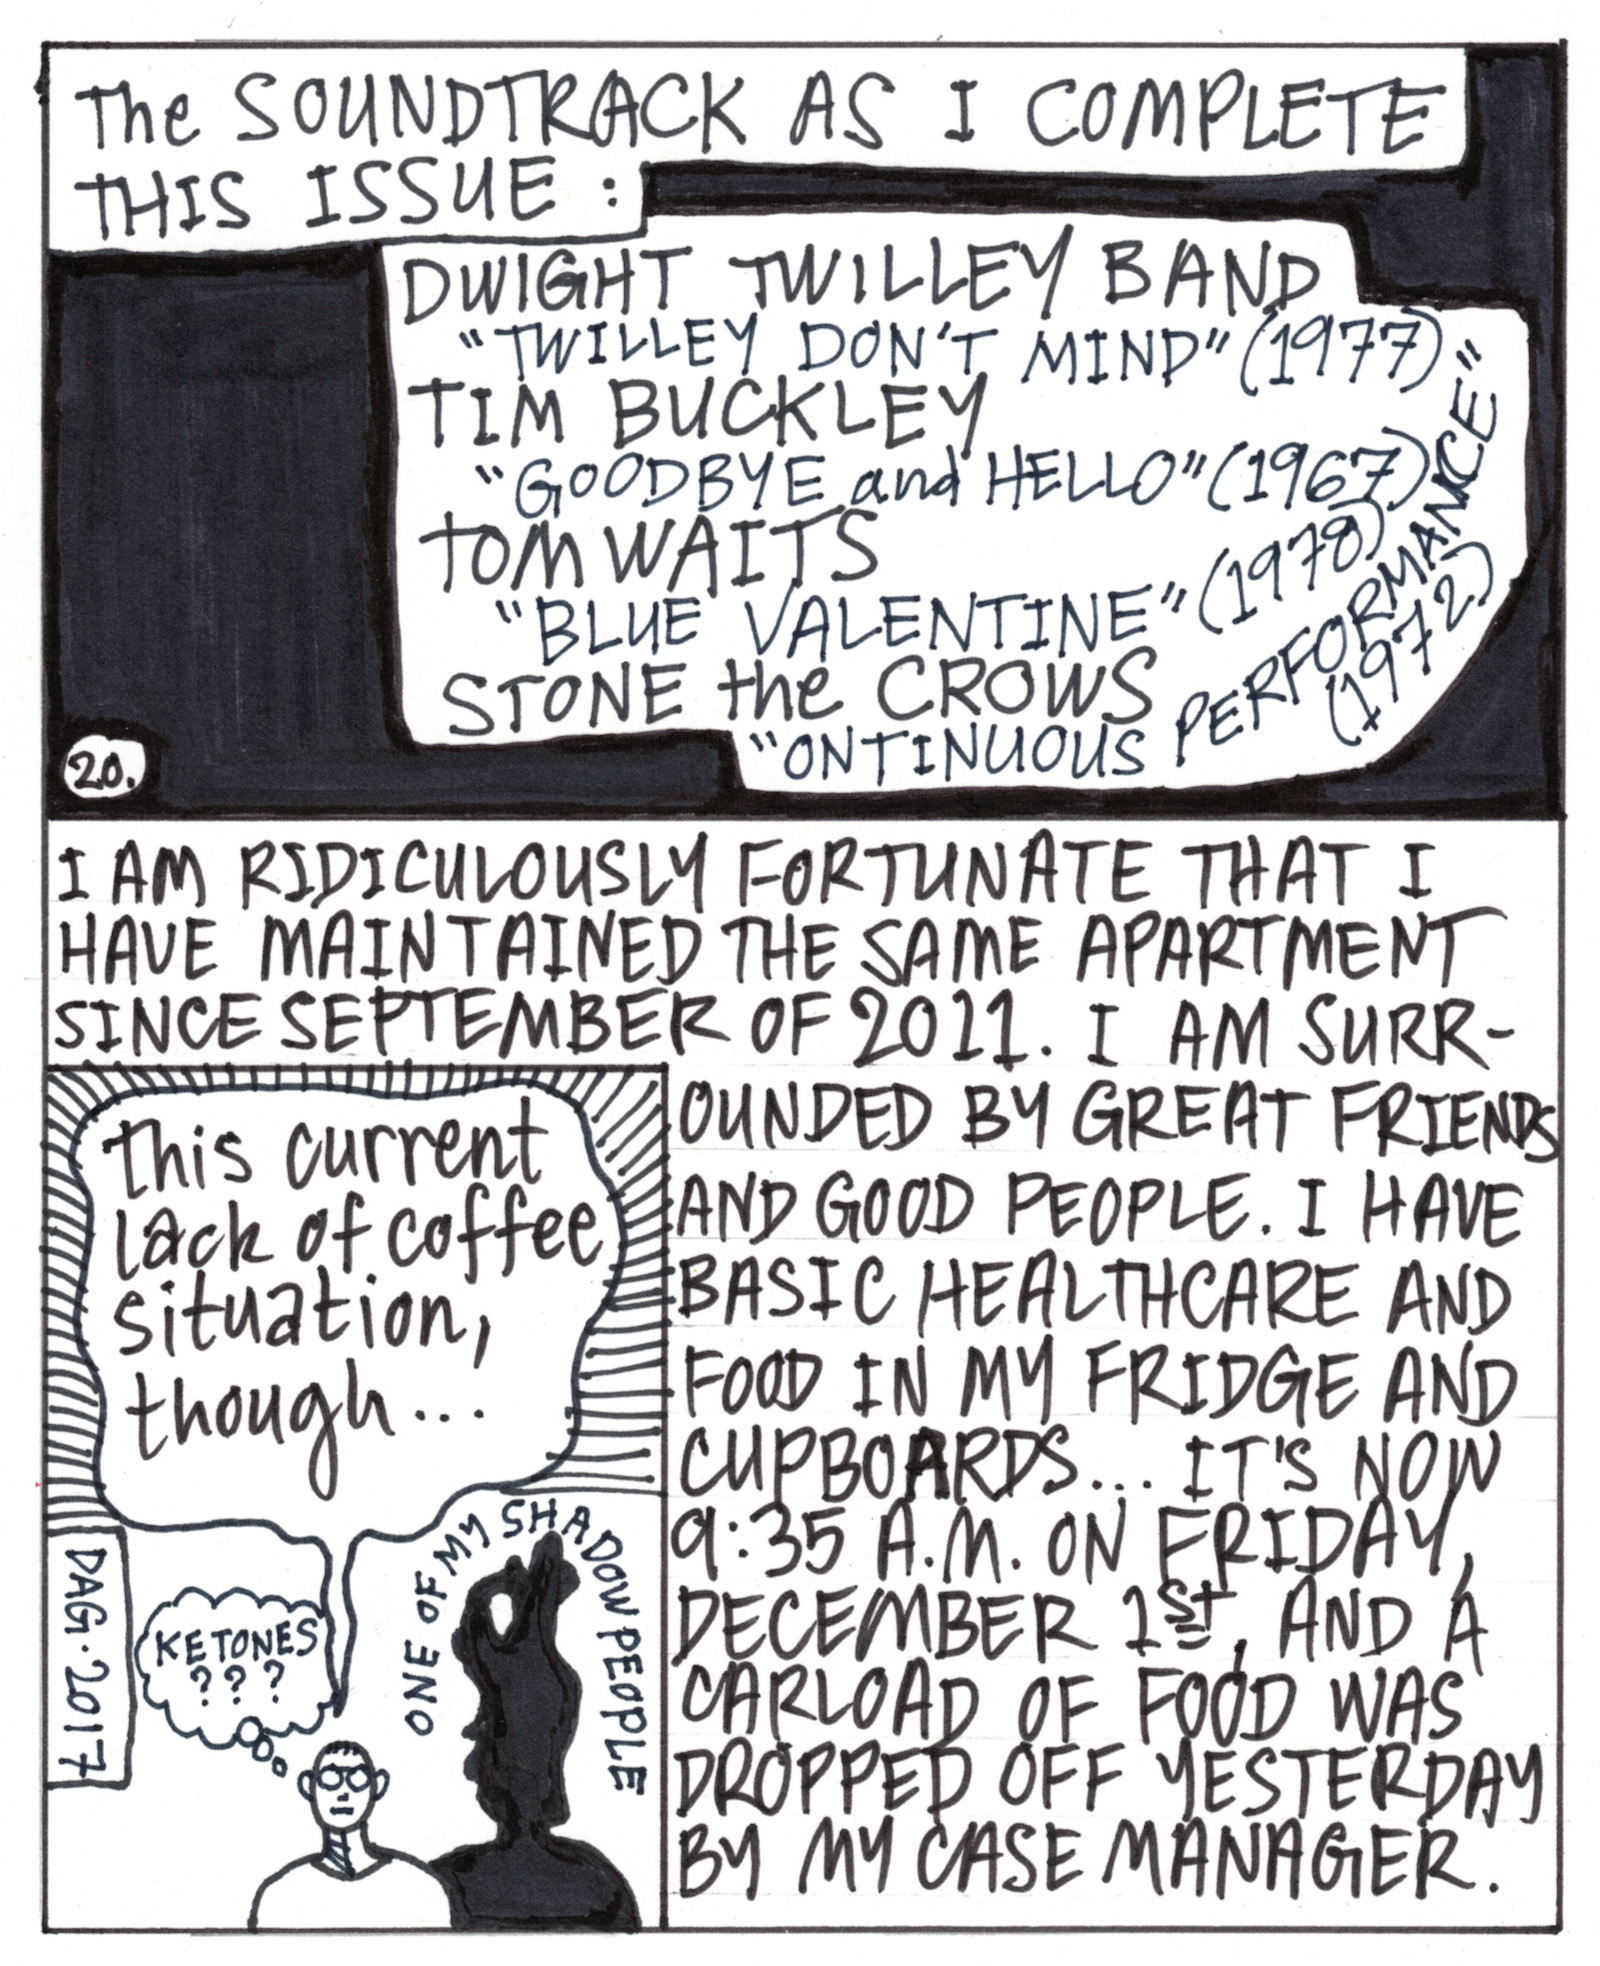 The SOUNDTRACK AS I COMPLETE
THIS ISSUE :
DWIGHT TWILLEY BAND
"TWILLEY DON'T MIND" (1977)
TIM BUCKLEY
"GOODBYE and HELLO" (1967)
TOM WAITS
"BLUE VALENTINE" (1978)
STONE the CROWS
"ONTINUOUS PERFORMANCE"
(1972)
20.
I AM RIDICULOUSLY FORTUNATE THAT I
HAVE MAINTAINED THE SAME APARTMENT
SINCE SEPTEMBER OF 2011. I AM SURR-
OUNDED BY GREAT FRIENDS
AND GOOD PEOPLE. I HAVE
BASIC HEALTHCARE AND
FOOD IN MY FRIDGE AND
CUPBOARDS... IT'S NOW
9:35 A.M. ON FRIDAY,
DECEMBER 1st, AND A
CARLOAD OF FOOD WAS
DROPPED OFF YESTERDAY
BY MY CASE MANAGER.
This current
lack of coffee
situation,
though...
DAG · 2017
KETONES
? ? ?
ONE OF MY SHADOW PEOPLE